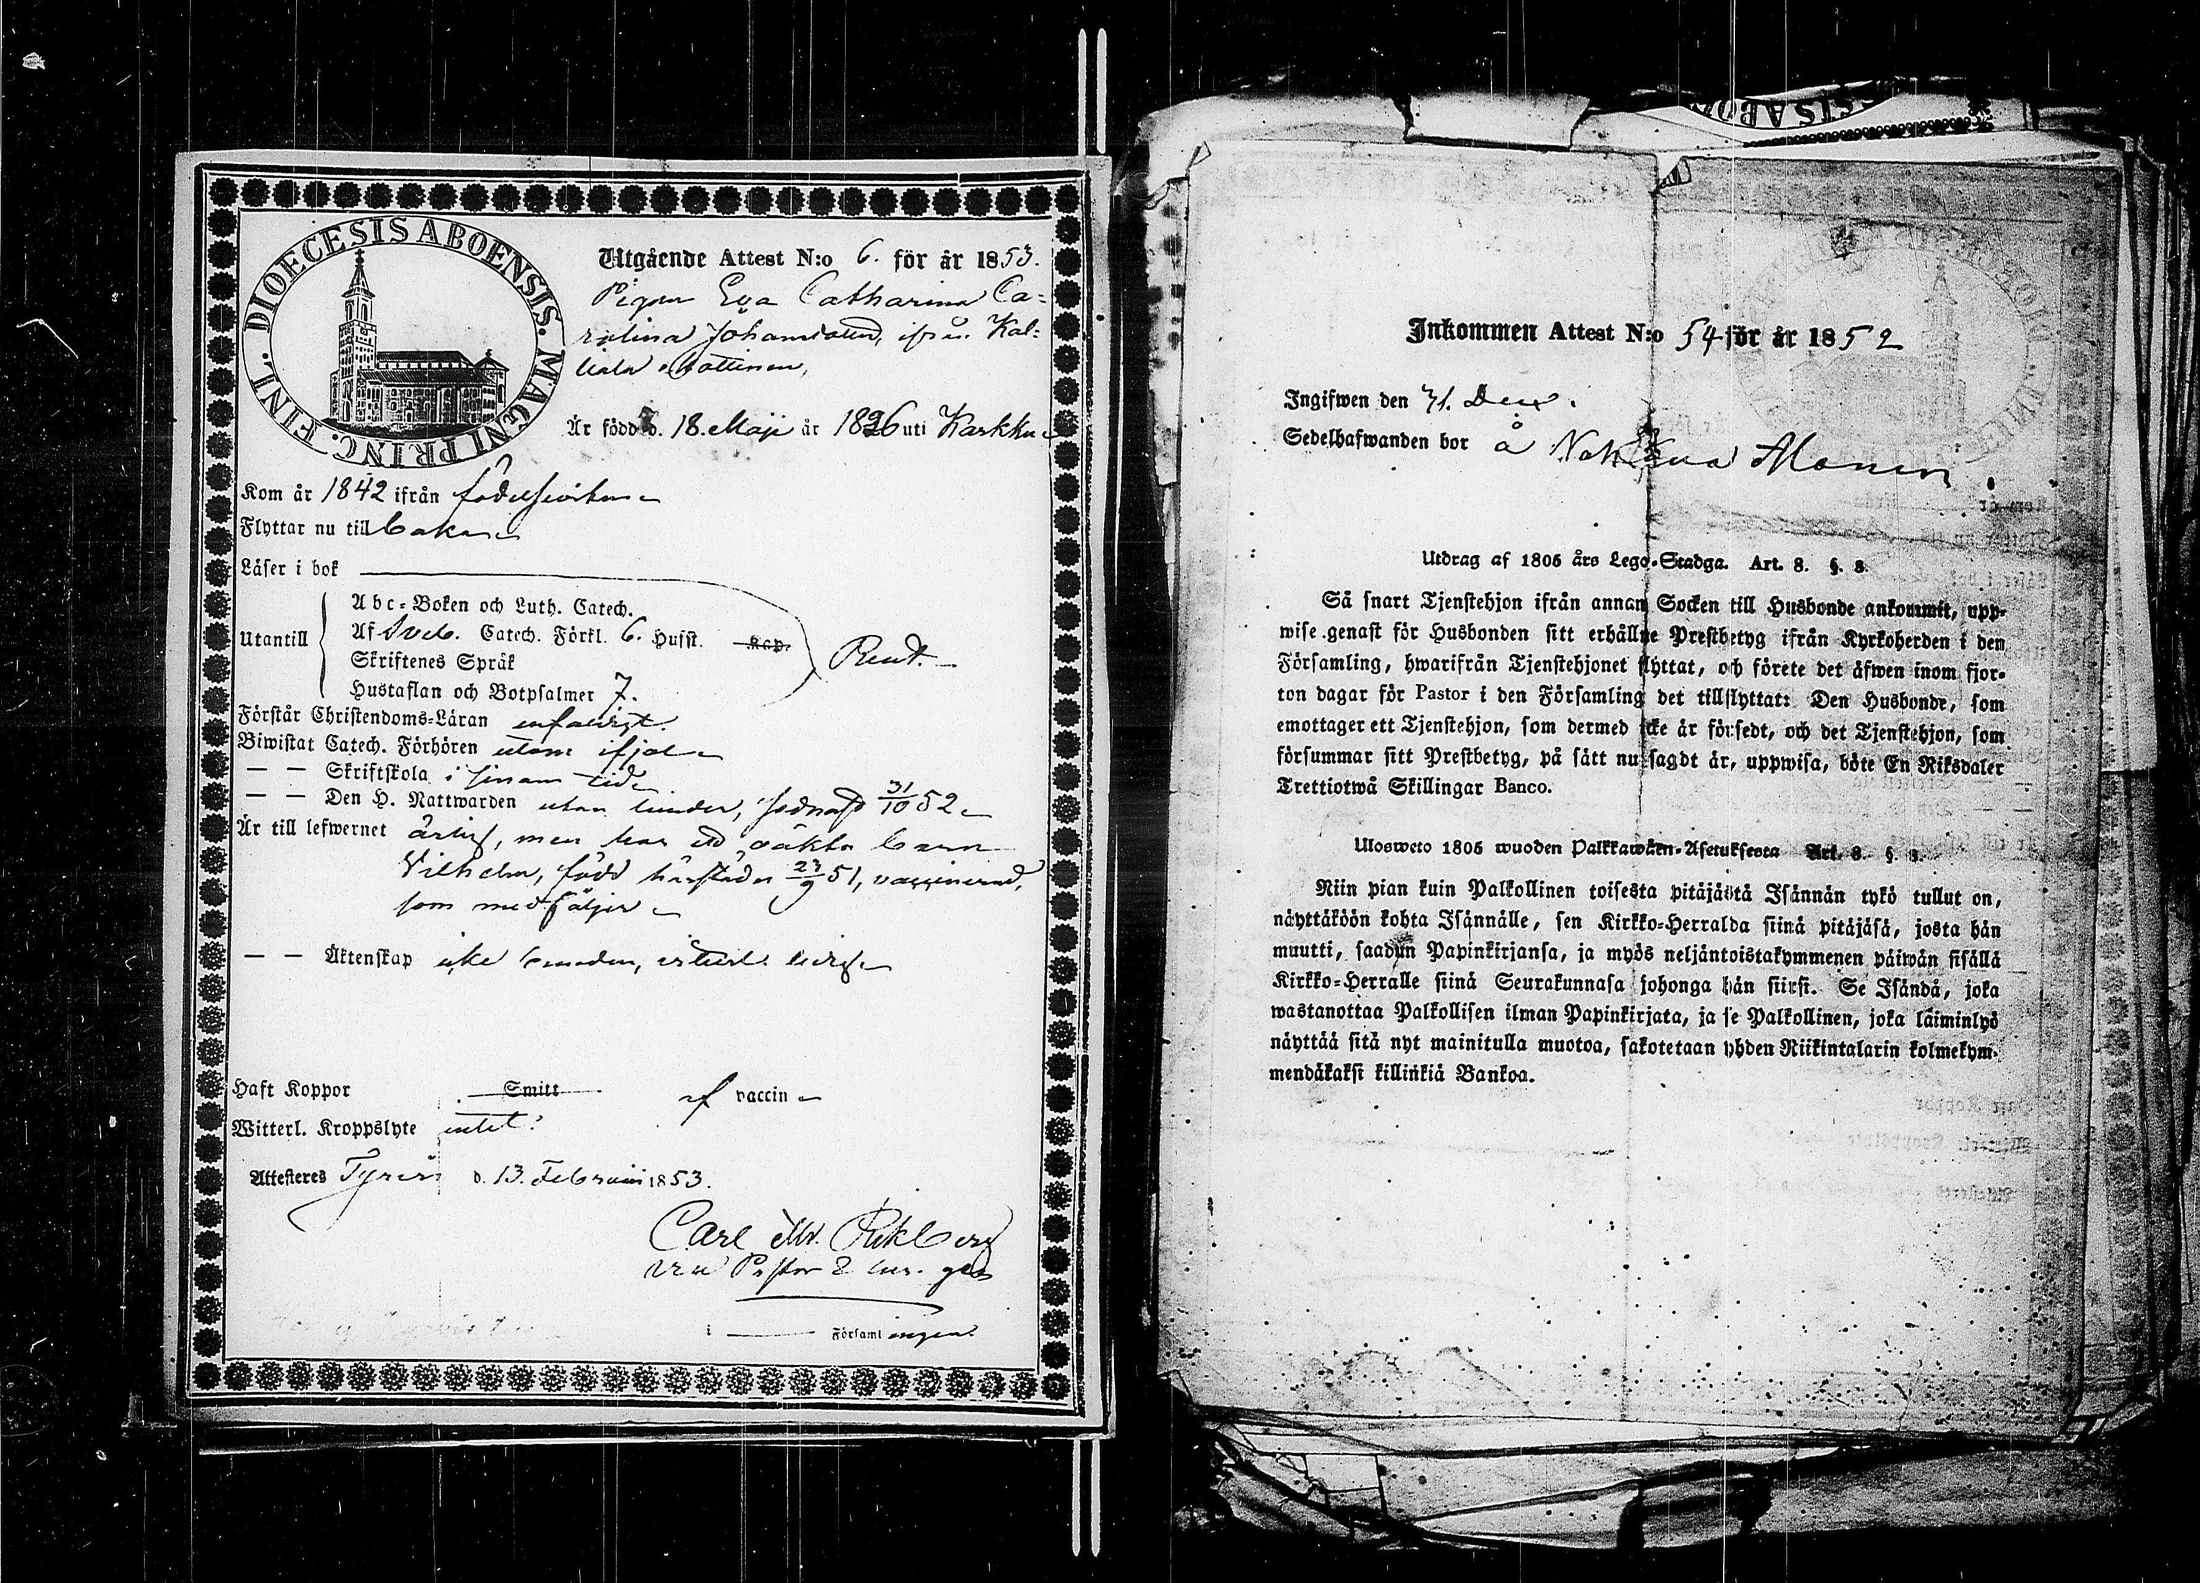 DIOECESIS ABOENSIS. MAGNI PRINC. FINL.
Utgående Attest N:o 6. för år 1853.
Pigan Eva Catharina Ca=
rolina Johansdotter, ifrån Kal=
liala Mattinen,
Är född d. 18. Maji år 1826 uti Karkku
Kom år 1842 ifrån födelseorten
Flyttar nu till baka
Läser i bok
Abc-Boken och Luth. Catech.
Utantill Af Sveb. Catech. Förkl. 6. Husst. Kap. Rent.
Skriftenes Språk
Hustaflan och Botpsalmer 7.
Förstår Christendoms-Läran enfaldigt.
Biwistat Catech. Förhören utom ifjol
— — Skriftskola i sinom tid
— — Den H. Nattwarden utan hinder, sednast 31/10 52
Är till lefwernet ärlig, men har ett oäkta barn
Vilhelm, född härstädes 23/9 51, vaccinerad,
som medföljer
— — Äktenskap icke bunden, ledig
Haft Koppor Smitt af vaccin
Witterl. Kroppslyte intet.
Attesteres Tyrvis d. 13. Februarii 1853.
Carl M. Rikberg
Pastor
i Församl ingen.
ESIS ABO
Inkommen Attest N:o 54 för år 1852
Ingifwen den 31. Dec.
Sedelhafwanden bor å
Utdrag af 1805 års Lego-Stadga. Art. 8. §. 8.
Så snart Tjenstehjon ifrån annan Socken till Husbonde ankommit, upp-
wise genast för Husbonden sitt erhållne Prestbetyg ifrån Kyrkoherden i den
Församling, hwarifrån Tjenstehjonet flyttat, och förete det äfwen inom fjor-
ton dagar för Pastor i den Församling det tillflyttat: Den Husbonde, som
emottager ett Tjenstehjon, som dermed icke är försedt, och det Tjenstehjon, som
försummar sitt Prestbetyg, på sätt nu sagdt är, uppwisa, böte En Riksdaler
Trettiotwå Skillingar Banco.
Ulosweto 1805 wuoden Palkkawäen-Asetuksesta Art. 8. §. 8.
Niin pian kuin Palkollinen toisesta pitäjästä Isännän tykö tullut on,
näyttäköön kohta Isännälle, sen Kirkko-Herralda siinä pitäjäsä, josta hän
muutti, saadun Papinkirjansa, ja myös neljäntoistakymmenen päiwän sisällä
Kirkko-Herralle siinä Seurakunnasa johonga hän siirsi. Se Isändä, joka
wastanottaa Palkollisen ilman Papinkirjata, ja se Palkollinen, joka läiminlyö
näyttää sitä nyt mainitulla muotoa, sakotetaan yhden Riikintalarin kolmekym-
mendäkaksi killinkiä Bankoa.